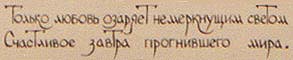 Только любовь озаряет немеркнущим светом
Счастливое завтра прогнившего мира.